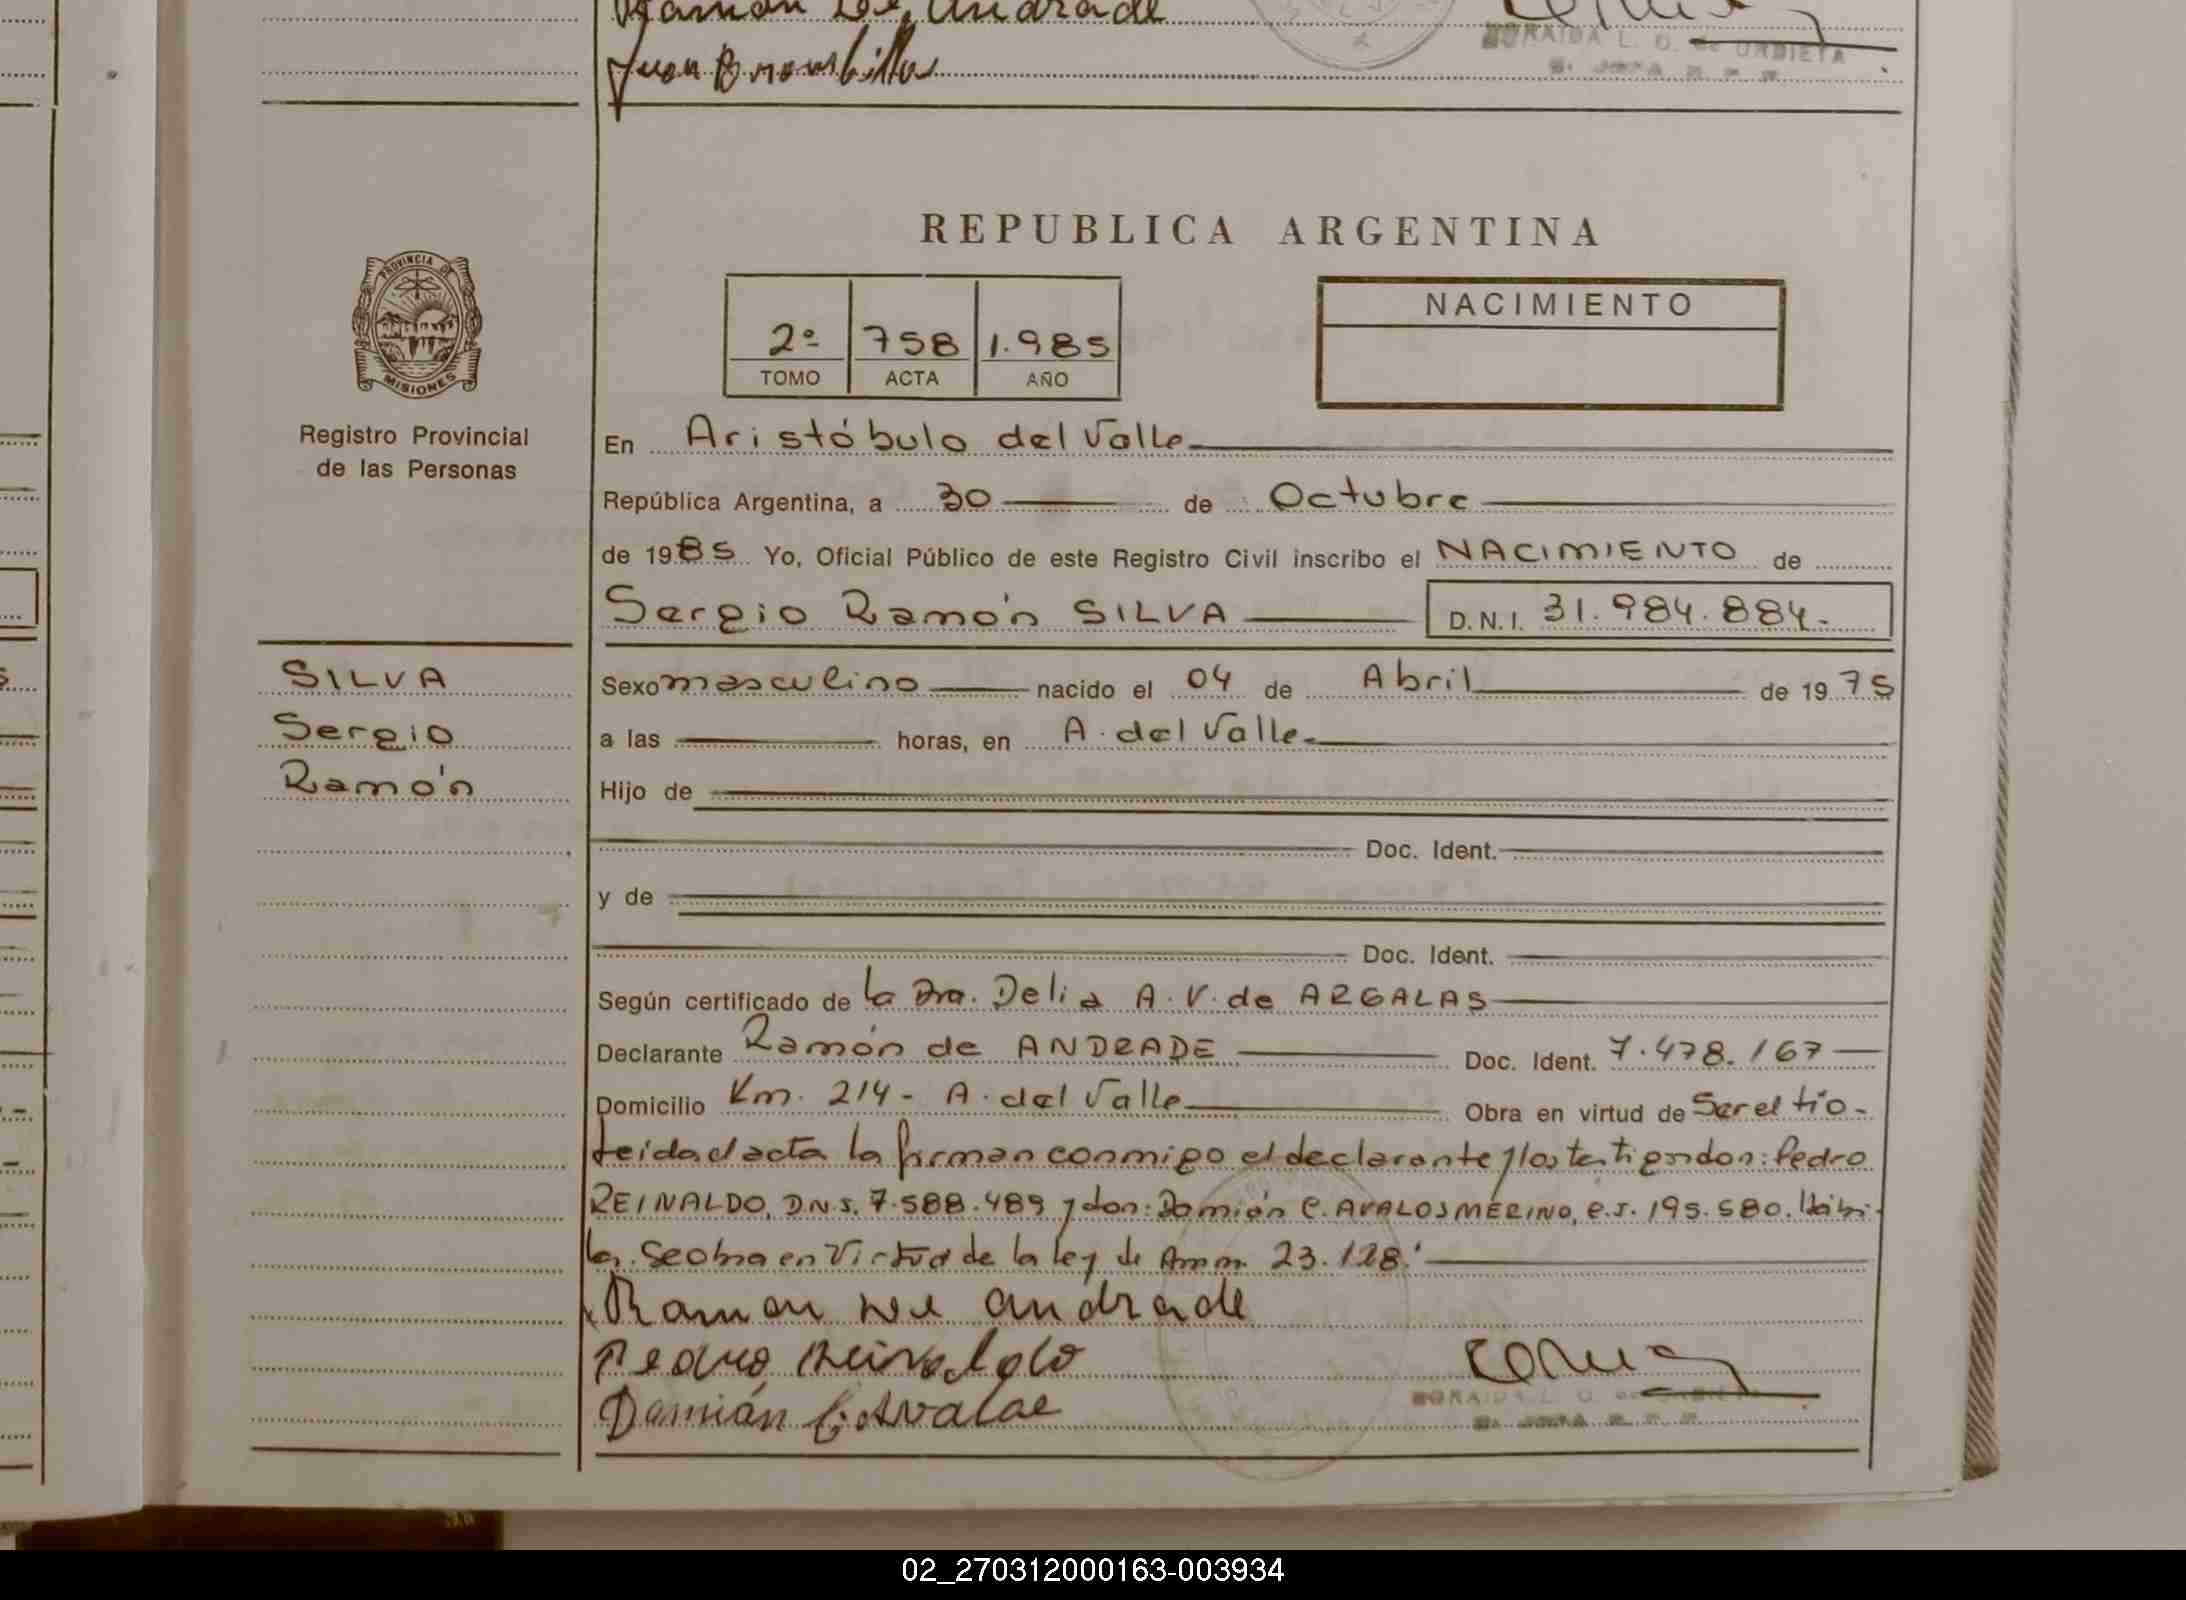 Ramón De Andrade
Juan
ZORAIDA L. O. de URBIETA
REPUBLICA ARGENTINA
PROVINCIA DE
MISIONES
Registro Provincial
de las Personas
2º 758 1.985
TOMO ACTA AÑO
NACIMIENTO
En Aristóbulo del Valle
República Argentina, a 30 de Octubre
de 1985 Yo, Oficial Público de este Registro Civil inscribo el NACIMIENTO de
Sergio Ramón SILVA D.N.I. 31.984.884.-
SILVA
Sergio
Ramón
Sexo masculino nacido el 04 de Abril de 1975
a las horas, en A. del Valle
Hijo de
Doc. Ident.
y de
Doc. Ident.
Según certificado de la Dra. Delia A. V. de ARGALAS
Declarante Ramón de ANDRADE Doc. Ident. 7.478.167
Domicilio Km. 214 - A. del Valle Obra en virtud de Ser el tío -
Leída el acta la firman conmigo el declarante y los testigos don: Pedro
REINALDO, D.N.I. 7.588.489 y don: Damián C. AVALOS MERINO, C.I. 195.580. Hábi-
les. Se obra en Virtud de la ley de Amn. 23.128.
Ramon De Andrade
Pedro Reinaldo
Damián C. Avalos
ZORAIDA L. O. de URBIETA
02_270312000163-003934